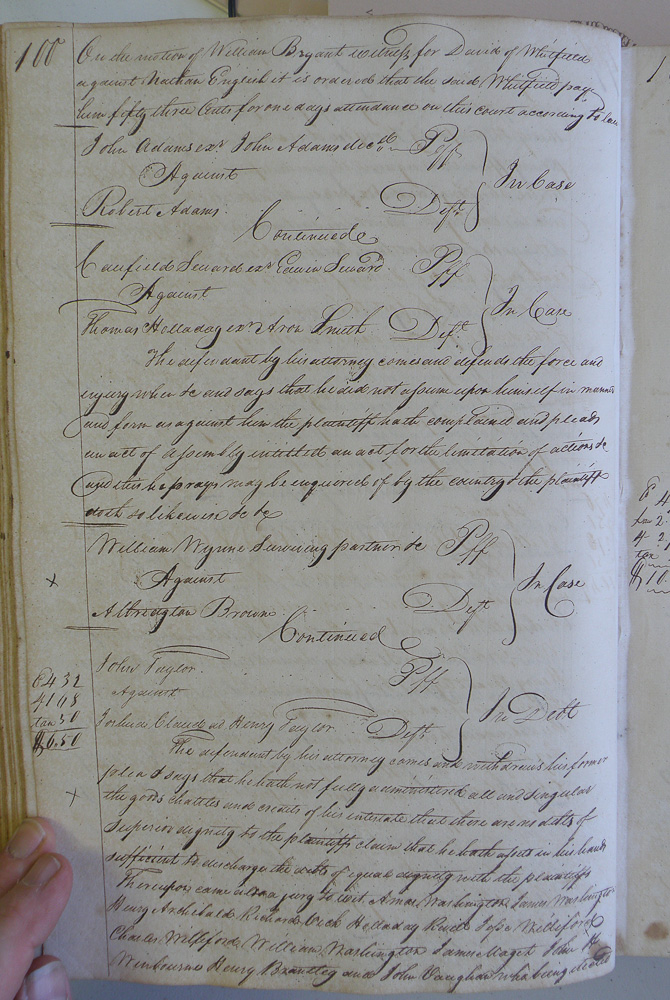 100
On the motion of William Bryant witness for David of Whitfield
against Nathan English it is ordered that the said Whitfield pay
him fifty three Cents for one days attendance on this court according to law
John Adams exr John Adams decd Pff
Against
In Case
Robert Adams. Deft
Continued
Canfield Seward exr Edwin Seward. Pff
Against
In Case
Thomas Holladay exr Aron Smith Deft
The defendant by his attorney comes and defends the force and
injury when &c and says that he did not assume upon himself in manner
and form as against him the plaintiff hath complained and pleads
an act of assembly intitled an act for the limitation of actions &c
and this he prays may be enquired of by the country & the plaintiff
doth so likewise &c &c
William Wynne Surviving partner &c Pff
x
Against
In Case
Albridgton Brown Deft
Continued
John Taylor. Pff
C 4 32
Against
4 1 68
In Debt
tax 50
Claud ad Henry Taylor Deft
$6.50
The defendant by his attorney comes and withdraws his former
plea & says that he hath not fully administered all and singular
x
the goods chattles and credits of his intestate that there are no debts of
Superior dignity to the plaintiffs claim that he hath assets in his hands
sufficient to discharge the debts of equal dignity with the plaintiffs
Thereupon came also a jury to wit Amos Washington James Washington
Henry Archibald Richard Holladay Jesse Williford
Charles Williford William Washington James Maget John H
Winbourne Henry Brantley and John Vaughan who being elected